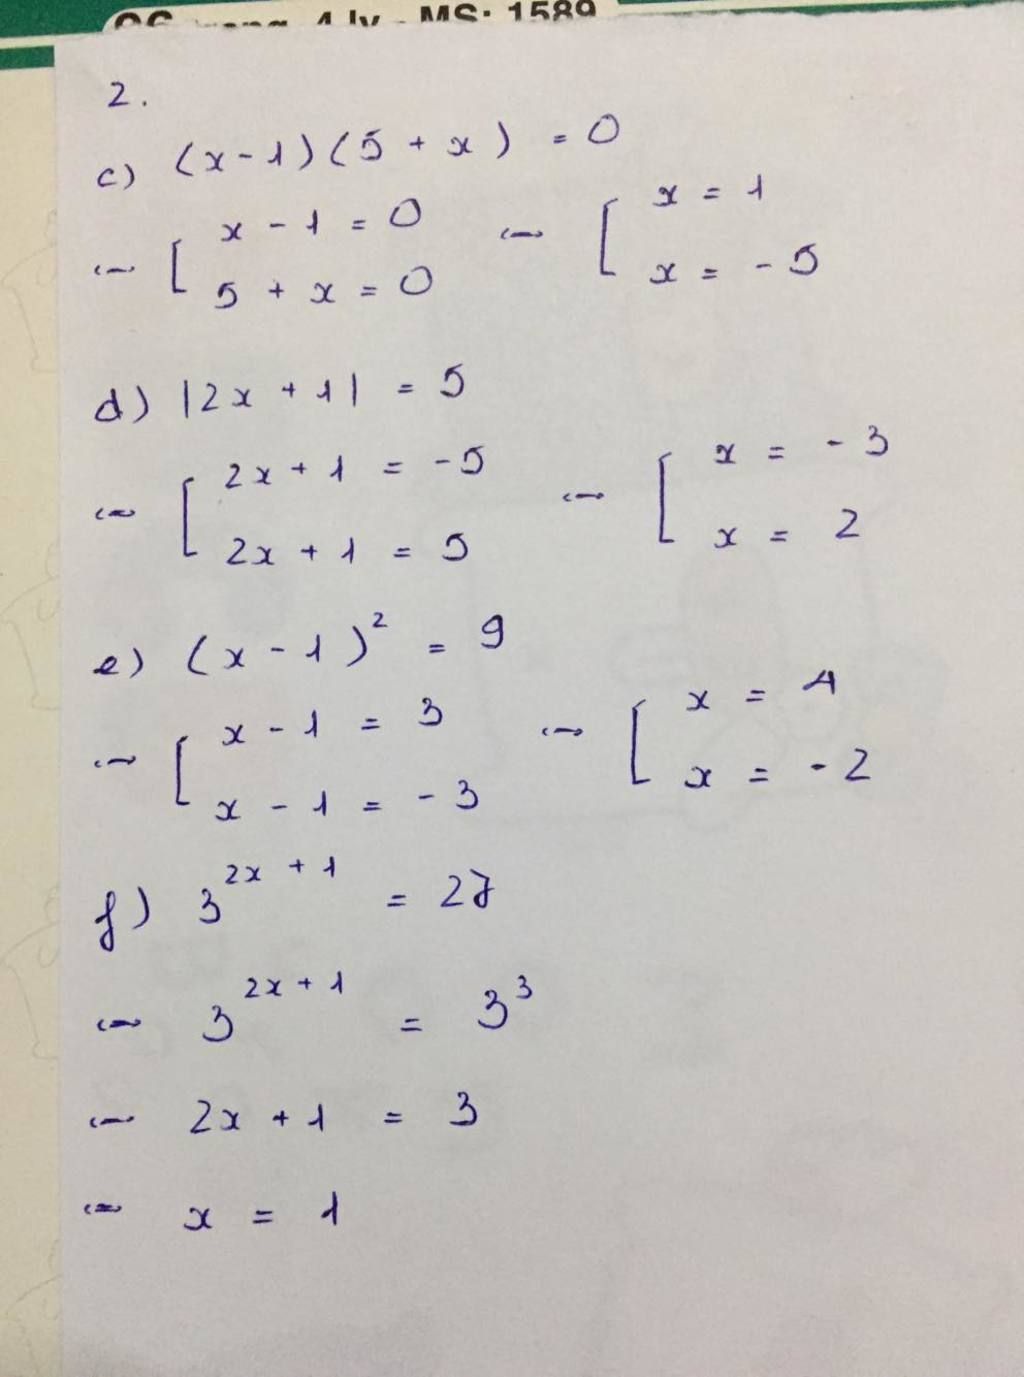 4 ly - MS: 1589
2.
c) (x-1)(5 + x) = 0
⇔ [ x - 1 = 0 ⇔ [ x = 1
5 + x = 0 x = -5
d) |2x + 1| = 5
⇔ [ 2x + 1 = -5 ⇔ [ x = -3
2x + 1 = 5 x = 2
e) (x - 1)² = 9
⇔ [ x - 1 = 3 ⇔ [ x = 4
x - 1 = -3 x = -2
f) 3^{2x + 1} = 27
⇔ 3^{2x + 1} = 3³
⇔ 2x + 1 = 3
⇔ x = 1